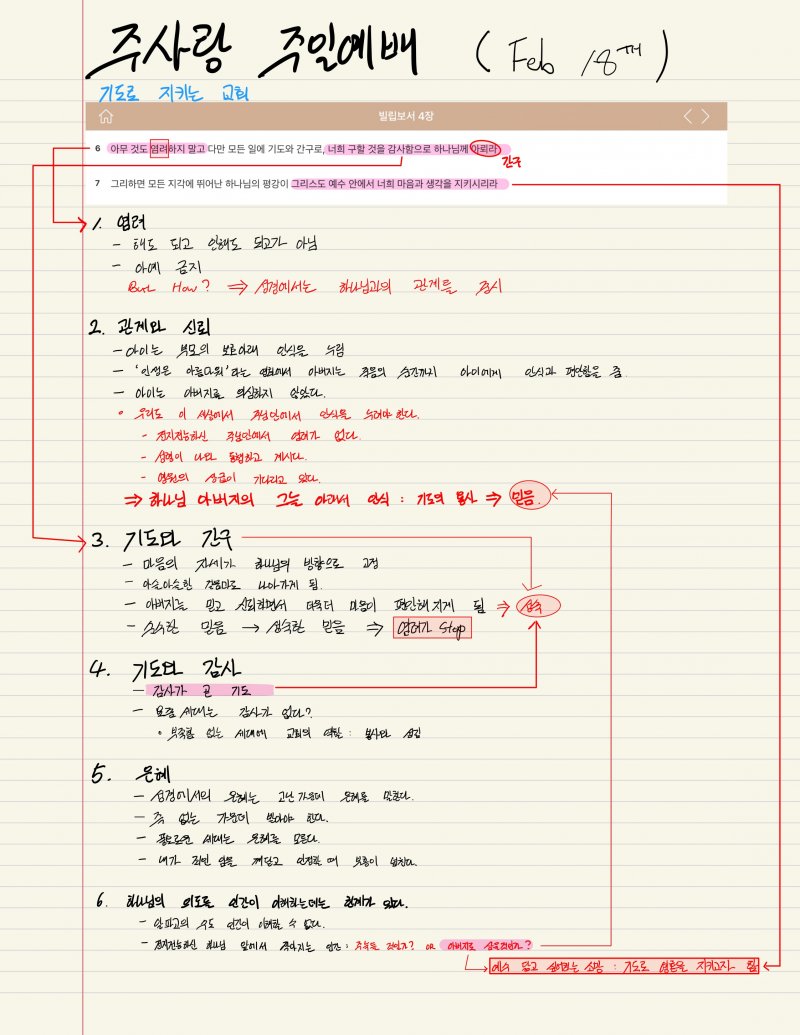 주사랑 주일예배 (Feb 18th)
기도로 지키는 교회
빌립보서 4장
6 아무 것도 염려하지 말고 다만 모든 일에 기도와 간구로, 너희 구할 것을 감사함으로 하나님께 아뢰라
간구
7 그리하면 모든 지각에 뛰어난 하나님의 평강이 그리스도 예수 안에서 너희 마음과 생각을 지키시리라
1. 염려
- 해도 되고 안해도 되고가 아님
- 아예 금지
But How? ⇒ 성경에서는 하나님과의 관계를 중시
2. 관계와 신뢰
- 아이는 부모의 보호아래 안식을 누림
- '인생은 아름다워'라는 영화에서 아버지는 죽음의 순간까지 아이에게 안식과 평안함을 줌.
- 아이는 아버지를 의심하지 않았다.
• 우리도 이 세상에서 주님안에서 안식을 누려야 한다.
- 전지전능하신 주님안에서 염려가 없다.
- 성령이 나와 동행하고 계시다.
- 영원의 상급이 기다리고 있다.
⇒ 하나님 아버지의 그늘 아래서 안식 : 기도의 용사 ⇒ 믿음.
3. 기도와 간구
- 마음의 자세가 하나님의 방향으로 고정
- 아슬아슬한 나아가게 됨.
- 아버지를 믿고 신뢰하면서 더욱더 마음이 편안해지게 됨 ⇒ 성숙
- 믿음 → 성숙한 믿음 ⇒ 염려가 Stop
4. 기도와 감사
- 감사가 곧 기도
- 요즘 세대는 감사가 없다?
• 부족함 없는 세대에 교회의 역할 : 봉사와 섬김
5. 은혜
- 성경에서의 은혜는 고난 가운데 은혜를 말한다.
- 죽 없는 가운데 받아야 한다.
- 풍요로운 세대는 은혜를 모른다.
- 내가 죄인 임을 깨닫고 인정할 때 보혈이 넘친다.
6. 하나님의 의도를 인간이 이해하는데는 한계가 있다.
- 알파고의 수도 인간이 이해할 수 없다.
- 전지전능하신 하나님 앞에서 주어지는 인간 : or 아버지로 삼을것인가?
예수 닮고 싶어하는 소망 : 기도로 영혼을 지키고자 함